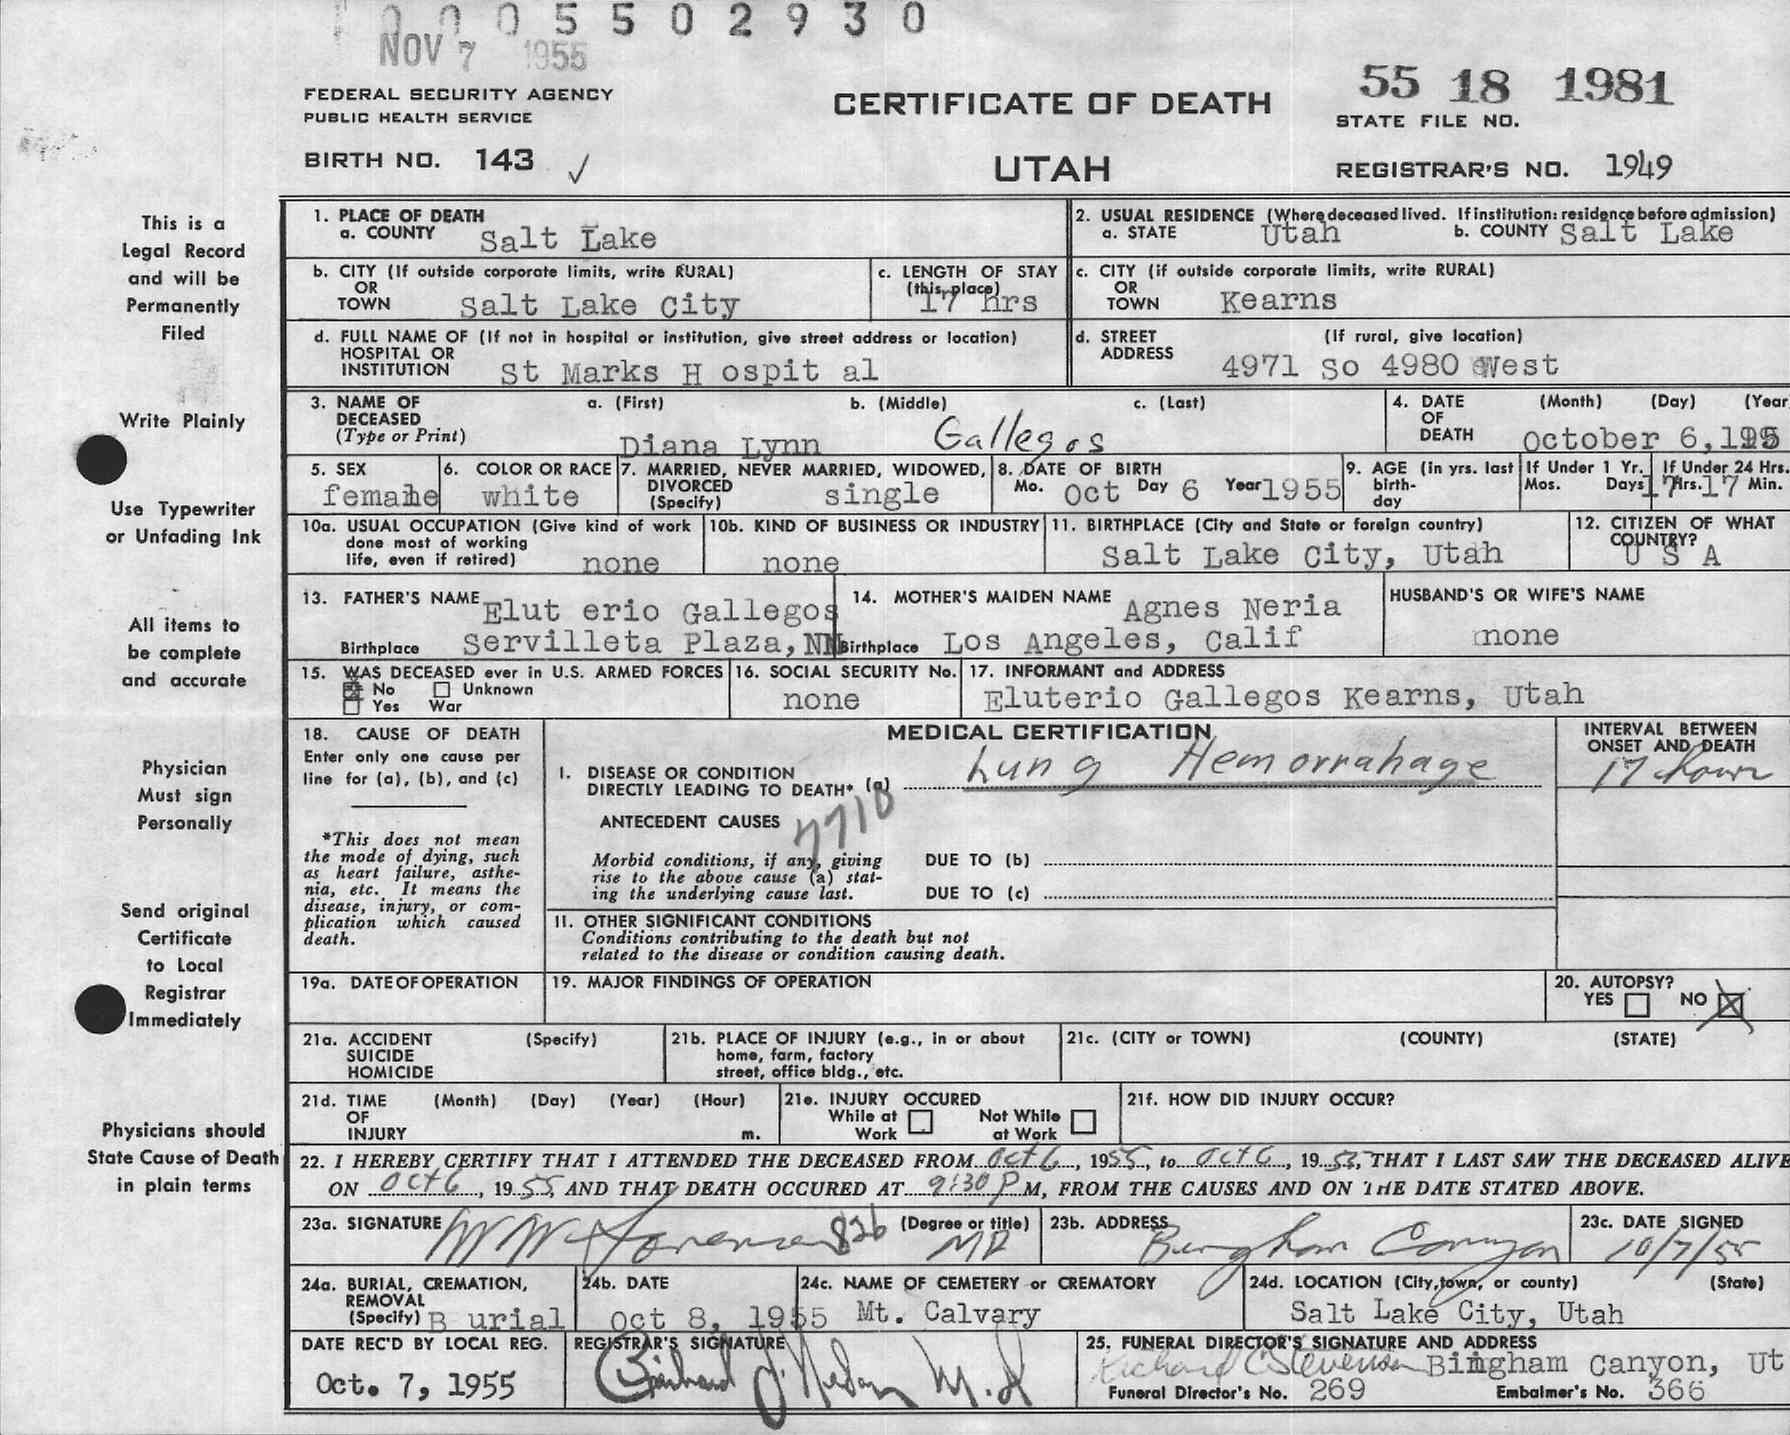 0 0 0 5 5 0 2 9 3 0
NOV 7 1955
55 18 1981
FEDERAL SECURITY AGENCY
PUBLIC HEALTH SERVICE
CERTIFICATE OF DEATH
STATE FILE NO.
BIRTH NO. 143 ✓
UTAH
REGISTRAR'S NO. 1949
This is a
Legal Record
and will be
Permanently
Filed
Write Plainly
Use Typewriter
or Unfading Ink
All items to
be complete
and accurate
Physician
Must sign
Personally
Send original
Certificate
to Local
Registrar
Immediately
Physicians should
State Cause of Death
in plain terms
1. PLACE OF DEATH
a. COUNTY Salt Lake
2. USUAL RESIDENCE (Where deceased lived. If institution: residence before admission)
a. STATE Utah b. COUNTY Salt Lake
b. CITY (If outside corporate limits, write RURAL)
OR
TOWN Salt Lake City
c. LENGTH OF STAY
(this place)
17 hrs
c. CITY (if outside corporate limits, write RURAL)
OR
TOWN Kearns
d. FULL NAME OF (If not in hospital or institution, give street address or location)
HOSPITAL OR
INSTITUTION St Marks H ospit al
d. STREET (If rural, give location)
ADDRESS 4971 So 4980 West
3. NAME OF a. (First) b. (Middle) c. (Last)
DECEASED
(Type or Print) Diana Lynn Gallegos
4. DATE (Month) (Day) (Year
OF
DEATH October 6,
5. SEX
female
6. COLOR OR RACE
white
7. MARRIED, NEVER MARRIED, WIDOWED,
DIVORCED
(Specify) single
8. DATE OF BIRTH
Mo. Oct Day 6 Year 1955
9. AGE (in yrs. last
birth-
day
If Under 1 Yr.
Mos. Days
If Under 24 Hrs.
17 Hrs. 17 Min.
10a. USUAL OCCUPATION (Give kind of work
done most of working
life, even if retired) none
10b. KIND OF BUSINESS OR INDUSTRY
none
11. BIRTHPLACE (City and State or foreign country)
Salt Lake City, Utah
12. CITIZEN OF WHAT
COUNTRY?
U S A
13. FATHER'S NAME Elut erio Gallegos
Birthplace Servilleta Plaza, NM
14. MOTHER'S MAIDEN NAME Agnes Neria
Birthplace Los Angeles, Calif
HUSBAND'S OR WIFE'S NAME
none
15. WAS DECEASED ever in U.S. ARMED FORCES
No Unknown
Yes War
16. SOCIAL SECURITY No.
none
17. INFORMANT and ADDRESS
Eluterio Gallegos Kearns, Utah
18. CAUSE OF DEATH
Enter only one cause per
line for (a), (b), and (c)
*This does not mean
the mode of dying, such
as heart failure, asthe-
nia, etc. It means the
disease, injury, or com-
plication which caused
death.
MEDICAL CERTIFICATION
I. DISEASE OR CONDITION
DIRECTLY LEADING TO DEATH* (a) Lung Hemorrahage
7710
ANTECEDENT CAUSES
Morbid conditions, if any, giving
rise to the above cause (a) stat-
ing the underlying cause last.
DUE TO (b)
DUE TO (c)
INTERVAL BETWEEN
ONSET AND DEATH
17 hour
II. OTHER SIGNIFICANT CONDITIONS
Conditions contributing to the death but not
related to the disease or condition causing death.
19a. DATE OF OPERATION
19. MAJOR FINDINGS OF OPERATION
20. AUTOPSY?
YES NO
21a. ACCIDENT (Specify)
SUICIDE
HOMICIDE
21b. PLACE OF INJURY (e.g., in or about
home, farm, factory
street, office bldg., etc.
21c. (CITY or TOWN) (COUNTY) (STATE)
21d. TIME (Month) (Day) (Year) (Hour)
OF
INJURY m.
21e. INJURY OCCURED
While at Work Not While at Work
21f. HOW DID INJURY OCCUR?
22. I HEREBY CERTIFY THAT I ATTENDED THE DECEASED FROM Oct 6, 1955, to Oct 6, 1955, THAT I LAST SAW THE DECEASED ALIVE
ON Oct 6, 1955 AND THAT DEATH OCCURED AT 9:30 P M, FROM THE CAUSES AND ON THE DATE STATED ABOVE.
23a. SIGNATURE 826 (Degree or title) MD
23b. ADDRESS Bingham Canyon
23c. DATE SIGNED
10/7/55
24a. BURIAL, CREMATION,
REMOVAL
(Specify) B urial
24b. DATE
Oct 8, 1955
24c. NAME OF CEMETERY or CREMATORY
Mt. Calvary
24d. LOCATION (City, town, or county) (State)
Salt Lake City, Utah
DATE REC'D BY LOCAL REG.
Oct. 7, 1955
REGISTRAR'S SIGNATURE
M.D
25. FUNERAL DIRECTOR'S SIGNATURE AND ADDRESS
Richard C Stevenson Bingham Canyon, Ut
Funeral Director's No. 269 Embalmer's No. 366